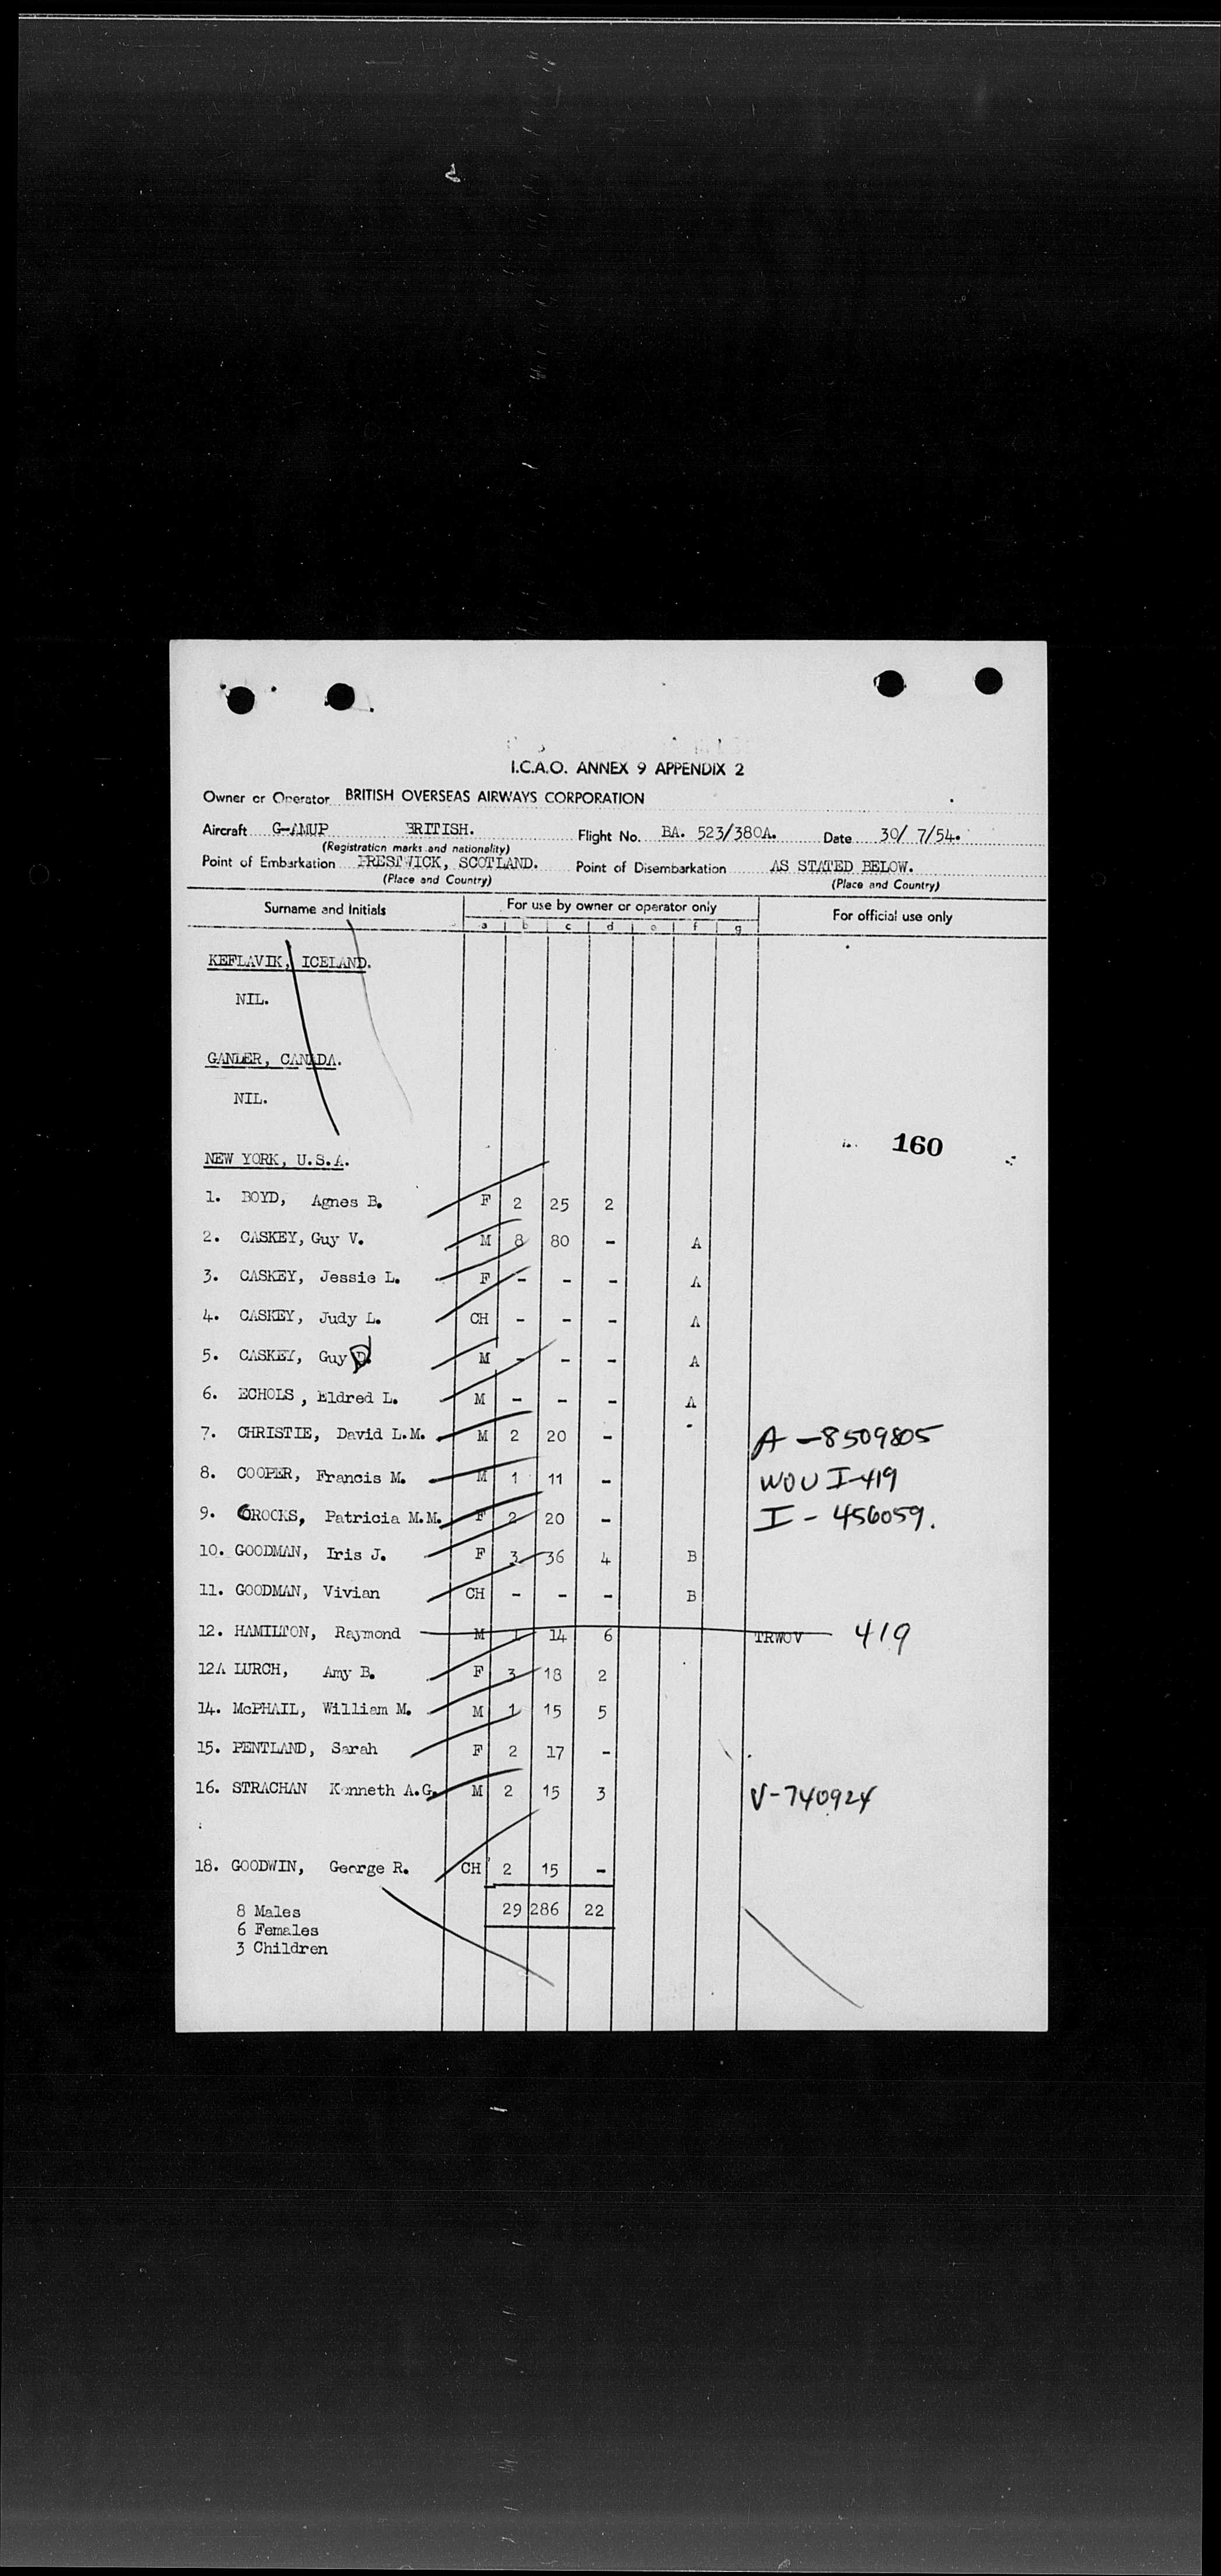 I.C.A.O. ANNEX 9 APPENDIX 2
Owner or Operator BRITISH OVERSEAS AIRWAYS CORPORATION
Aircraft G-AMUP BRITISH. Flight No. BA. 523/380A. Date 30/ 7/54.
(Registration marks and nationality)
Point of Embarkation PRESTWICK, SCOTLAND. Point of Disembarkation AS STATED BELOW.
(Place and Country) (Place and Country)
Surname and Initials For use by owner or operator only For official use only
a b c d e f g
KEFLAVIK, ICELAND.
NIL.
GANDER, CANADA.
NIL.
160
NEW YORK, U.S.A.
1. BOYD, Agnes B. F 2 25 2
2. CASKEY, Guy V. M 8 80 - A
3. CASKEY, Jessie L. F - - - A
4. CASKEY, Judy L. CH - - - A
5. CASKEY, Guy D M - - - A
6. ECHOLS, Eldred L. M - - - A
7. CHRISTIE, David L.M. M 2 20 - A-8509805
8. COOPER, Francis M. M 1 11 - WOU I-419
9. CROCKS, Patricia M.M. F 2 20 - I-456059.
10. GOODMAN, Iris J. F 3 36 4 B
11. GOODMAN, Vivian CH - - - B
12. HAMILTON, Raymond M 1 14 6 TRWOV 419
12A LURCH, Amy B. F 3 18 2
14. McPHAIL, William M. M 1 15 5
15. PENTLAND, Sarah F 2 17 -
16. STRACHAN Kenneth A.G. M 2 15 3 V-740924
18. GOODWIN, George R. CH 2 15 -
8 Males 29 286 22
6 Females
3 Children